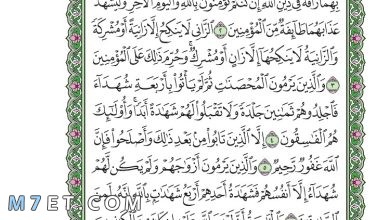 بِهِمَا رَأْفَةٌ فِي دِينِ اللَّهِ إِن كُنتُمْ تُؤْمِنُونَ بِاللَّهِ وَالْيَوْمِ الْآخِرِ وَلْيَشْهَدْ
عَذَابَهُمَا طَائِفَةٌ مِّنَ الْمُؤْمِنِينَ ٢ الزَّانِي لَا يَنكِحُ إِلَّا زَانِيَةً أَوْ مُشْرِكَةً
وَالزَّانِيَةُ لَا يَنكِحُهَا إِلَّا زَانٍ أَوْ مُشْرِكٌ وَحُرِّمَ ذَٰلِكَ عَلَى الْمُؤْمِنِينَ
٣ وَالَّذِينَ يَرْمُونَ الْمُحْصَنَاتِ ثُمَّ لَمْ يَأْتُوا بِأَرْبَعَةِ شُهَدَاءَ
فَاجْلِدُوهُمْ ثَمَانِينَ جَلْدَةً وَلَا تَقْبَلُوا لَهُمْ شَهَادَةً أَبَدًا وَأُولَٰئِكَ
هُمُ الْفَاسِقُونَ ٤ إِلَّا الَّذِينَ تَابُوا مِن بَعْدِ ذَٰلِكَ وَأَصْلَحُوا فَإِنَّ
اللَّهَ غَفُورٌ رَّحِيمٌ ٥ وَالَّذِينَ يَرْمُونَ أَزْوَاجَهُمْ وَلَمْ يَكُن لَّهُمْ
شُهَدَاءُ إِلَّا أَنفُسُهُمْ فَشَهَادَةُ أَحَدِهِمْ أَرْبَعُ شَهَادَاتٍ بِاللَّهِ إِنَّهُ لَمِنَ
M7ET.COM